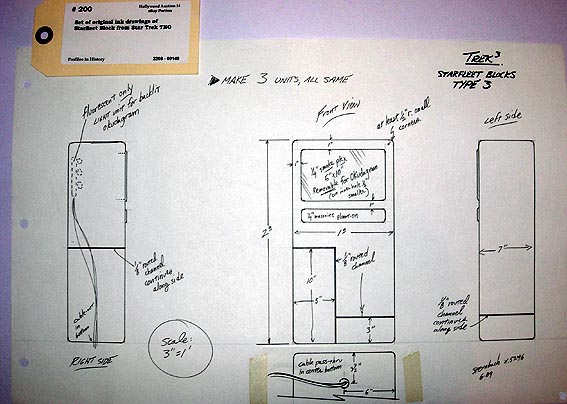 # 200
Hollywood Auction 14
eBay Portion
Set of original ink drawings of
Starfleet Block from Star Trek TNG
Profiles in History
2208 - 00149
TREK³
STARFLEET BLOCKS
TYPE 3
▶ MAKE 3 UNITS, ALL SAME
fluorescent only
LIGHT UNIT for backlit
Okudagram
FRONT VIEW
at least ½" r. small
corners
Left side
1"
1"
¼" smoke plex
6" x 10"
Removable for Okudagram
smaller)
1"
¼" masonite
2'8
1'3
⅛" routed
channel
continues
along side
⅛" routed
channel
10"
5"
3"
7"
⅛" routed
channel
continues
along side
cable
in
bottom
RIGHT SIDE
scale:
3"=1'
cable pass-thru
in center bottom
3½"
6"
sternbach x5296
6·89